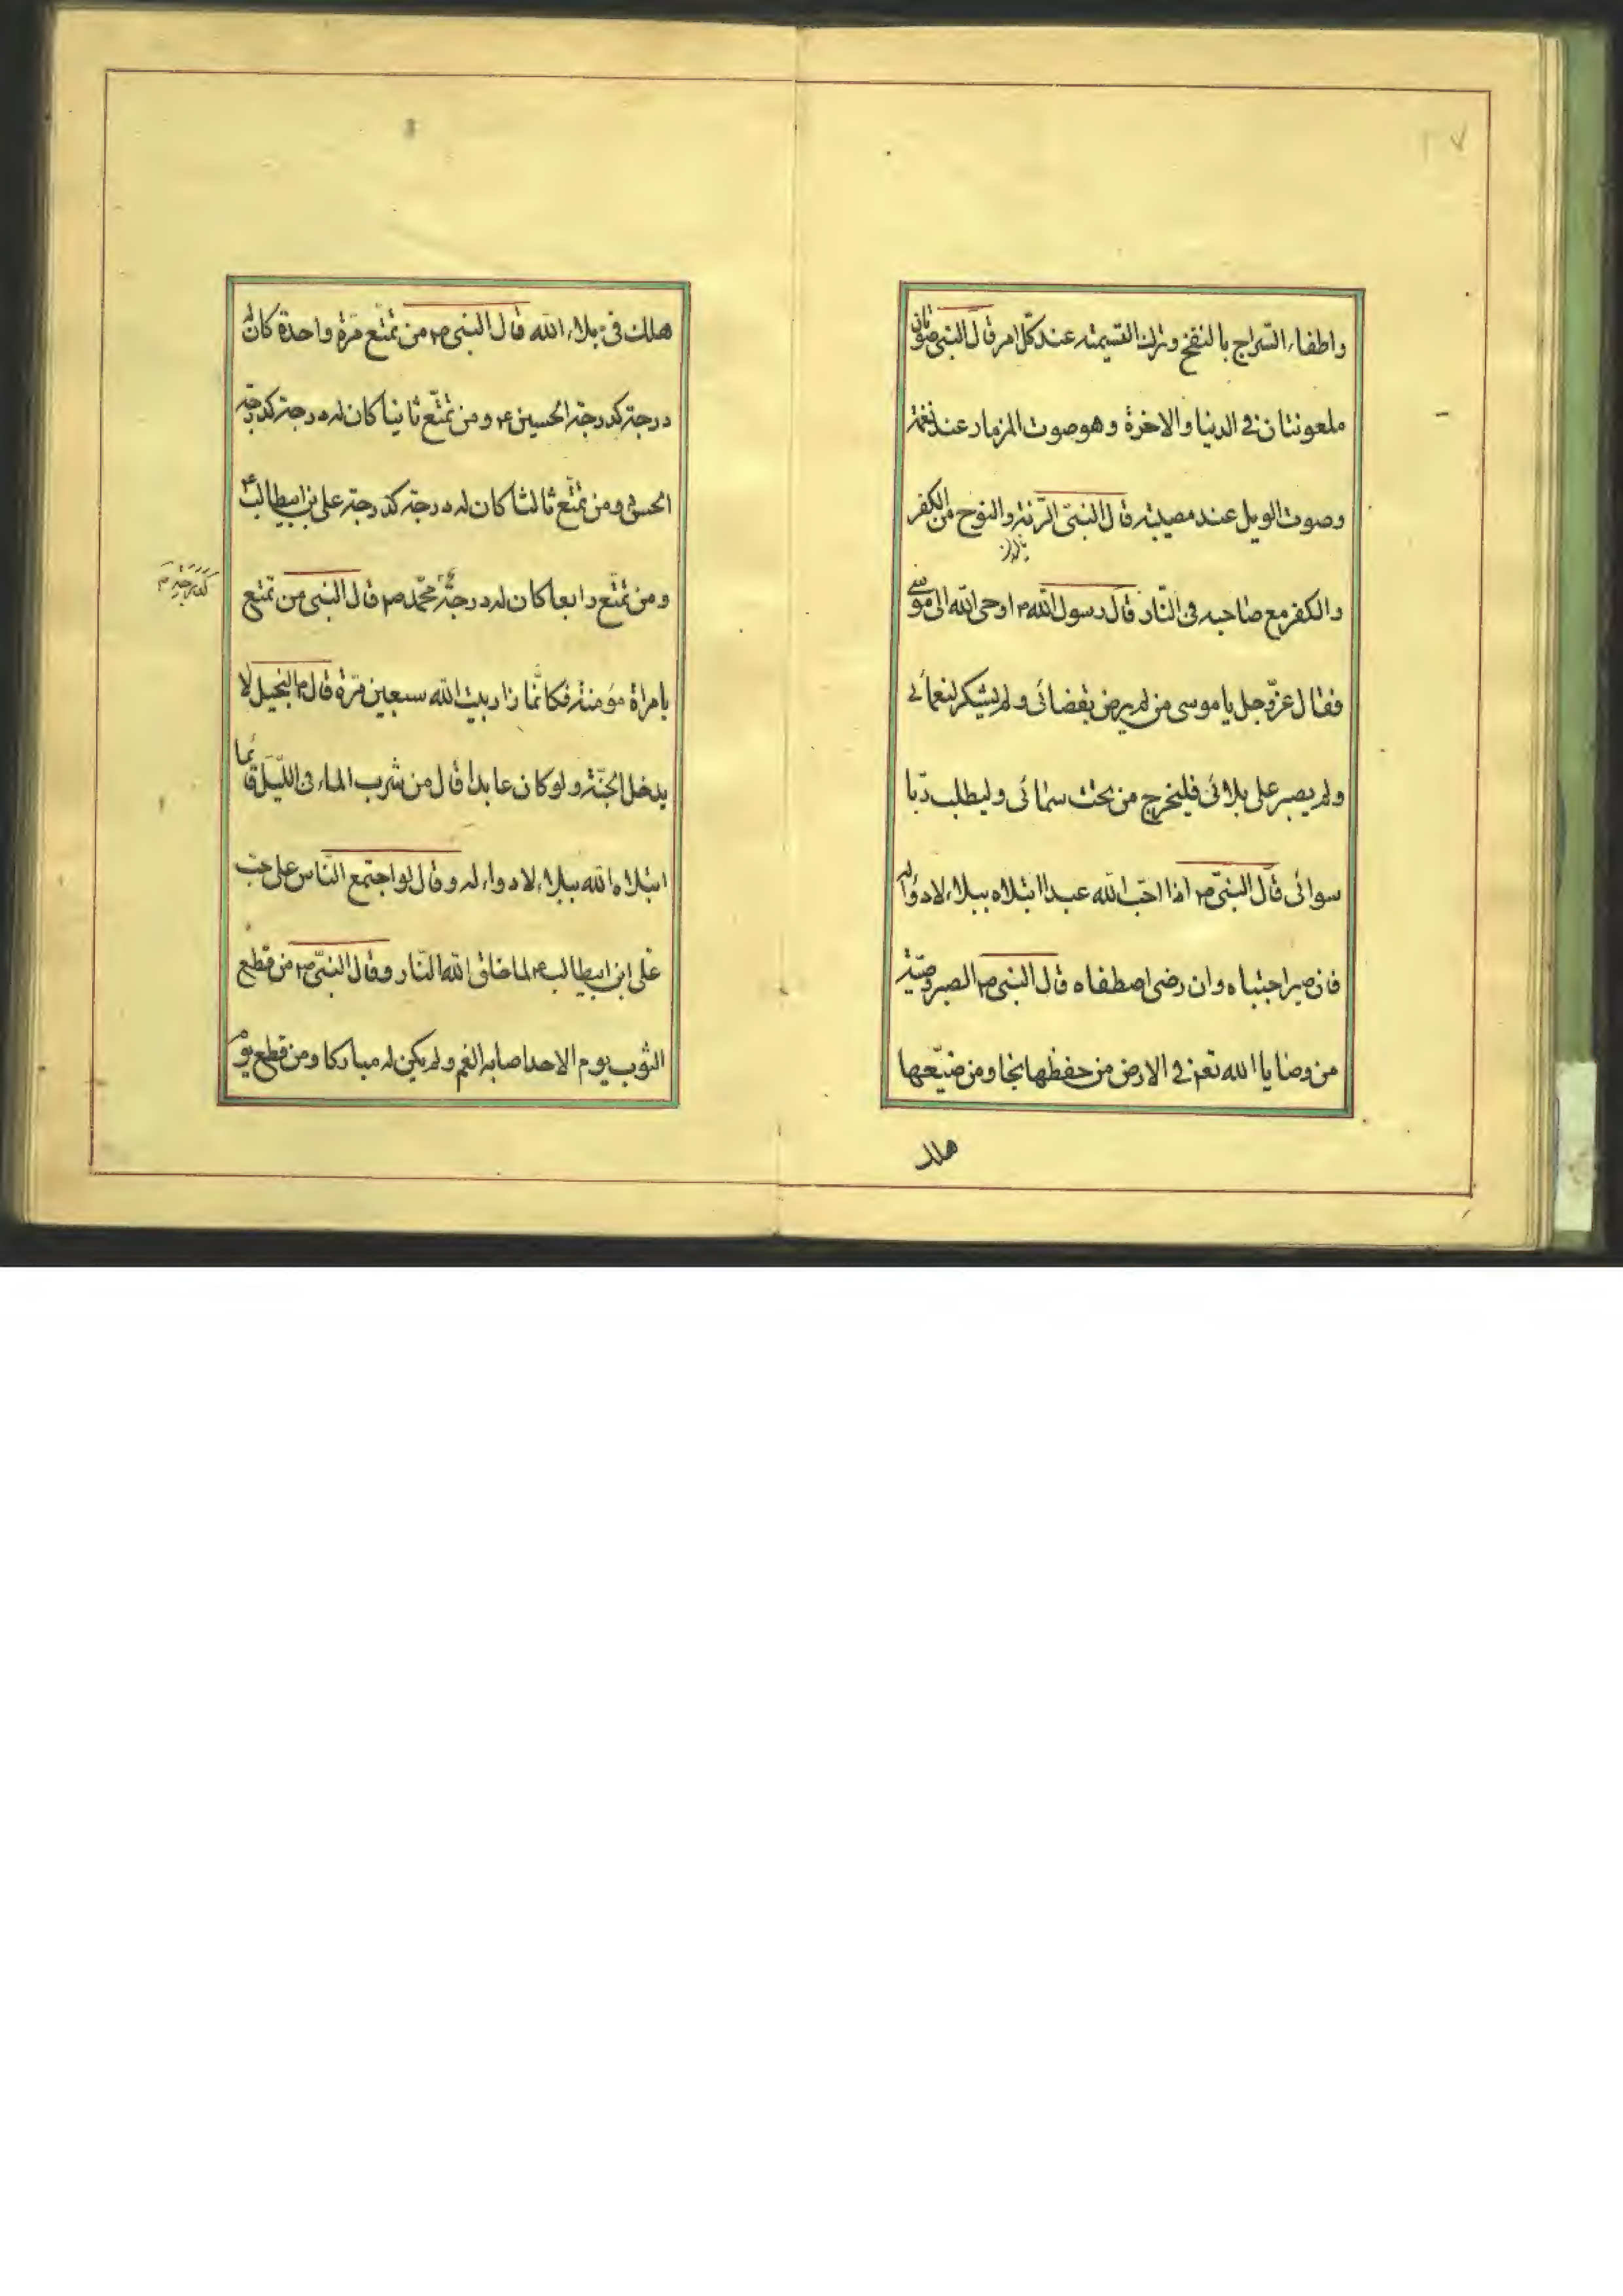 واطفاء السراج بالنفخ وترك القسیمته عند كلّ امر قال النبی صوتان
ملعونتان فی الدنیا والاخرة وهو صوت المزمار عند نغمة
وصوت الویل عند مصیبته قال النبیّ الرّنة والنوح من الكفر
والكفر مع صاحبه فی النّار قال رسول الله ص اوحی الله الی موسی
فقال عزّ وجل یا موسی من لم یرض بقضائی ولم یشكر لنعمائی
ولم یصبر علی بلائی فلیخرج من تحت سمائی ولیطلب ربّا
سوائی قال النبیّ ص اذا احبّ الله عبدا ابتلاه ببلاء لا دواء له
فان صبر اجتباه وان رضی اصطفاه قال النبی ص الصبر وصیّة
من وصایا الله تع فی الارض من حفظها نجا ومن ضیّعها
هلك
هلك فی بلاء الله قال النبی ص من تمتّع مرّة واحدة كان له
درجته كدرجة الحسین ع ومن تمتّع ثانیا كان له درجته كدرجة
الحسن ع ومن تمتّع ثالثا كان له درجته كدرجة علی بن ابیطالب ع
ومن تمتّع رابعا كان له درجة محمّد ص قال النبی من تمتع
كدرجة م
بامراة مؤمنة فكانّما زار بیت الله سبعین مرّة قال ص البخیل لا
یدخل الجنّة ولو كان عابدا قال من شرب الماء فی اللّیل قائما
ابتلاه الله ببلاء لا دواء له وقال لو اجتمع النّاس علی حبّ
علی ابن ابیطالب ع لما خلق الله النّار وقال النبیّ ص من قطع
الثوب یوم الاحد اصابه الغم ولم یكن له مباركا ومن قطع یوم